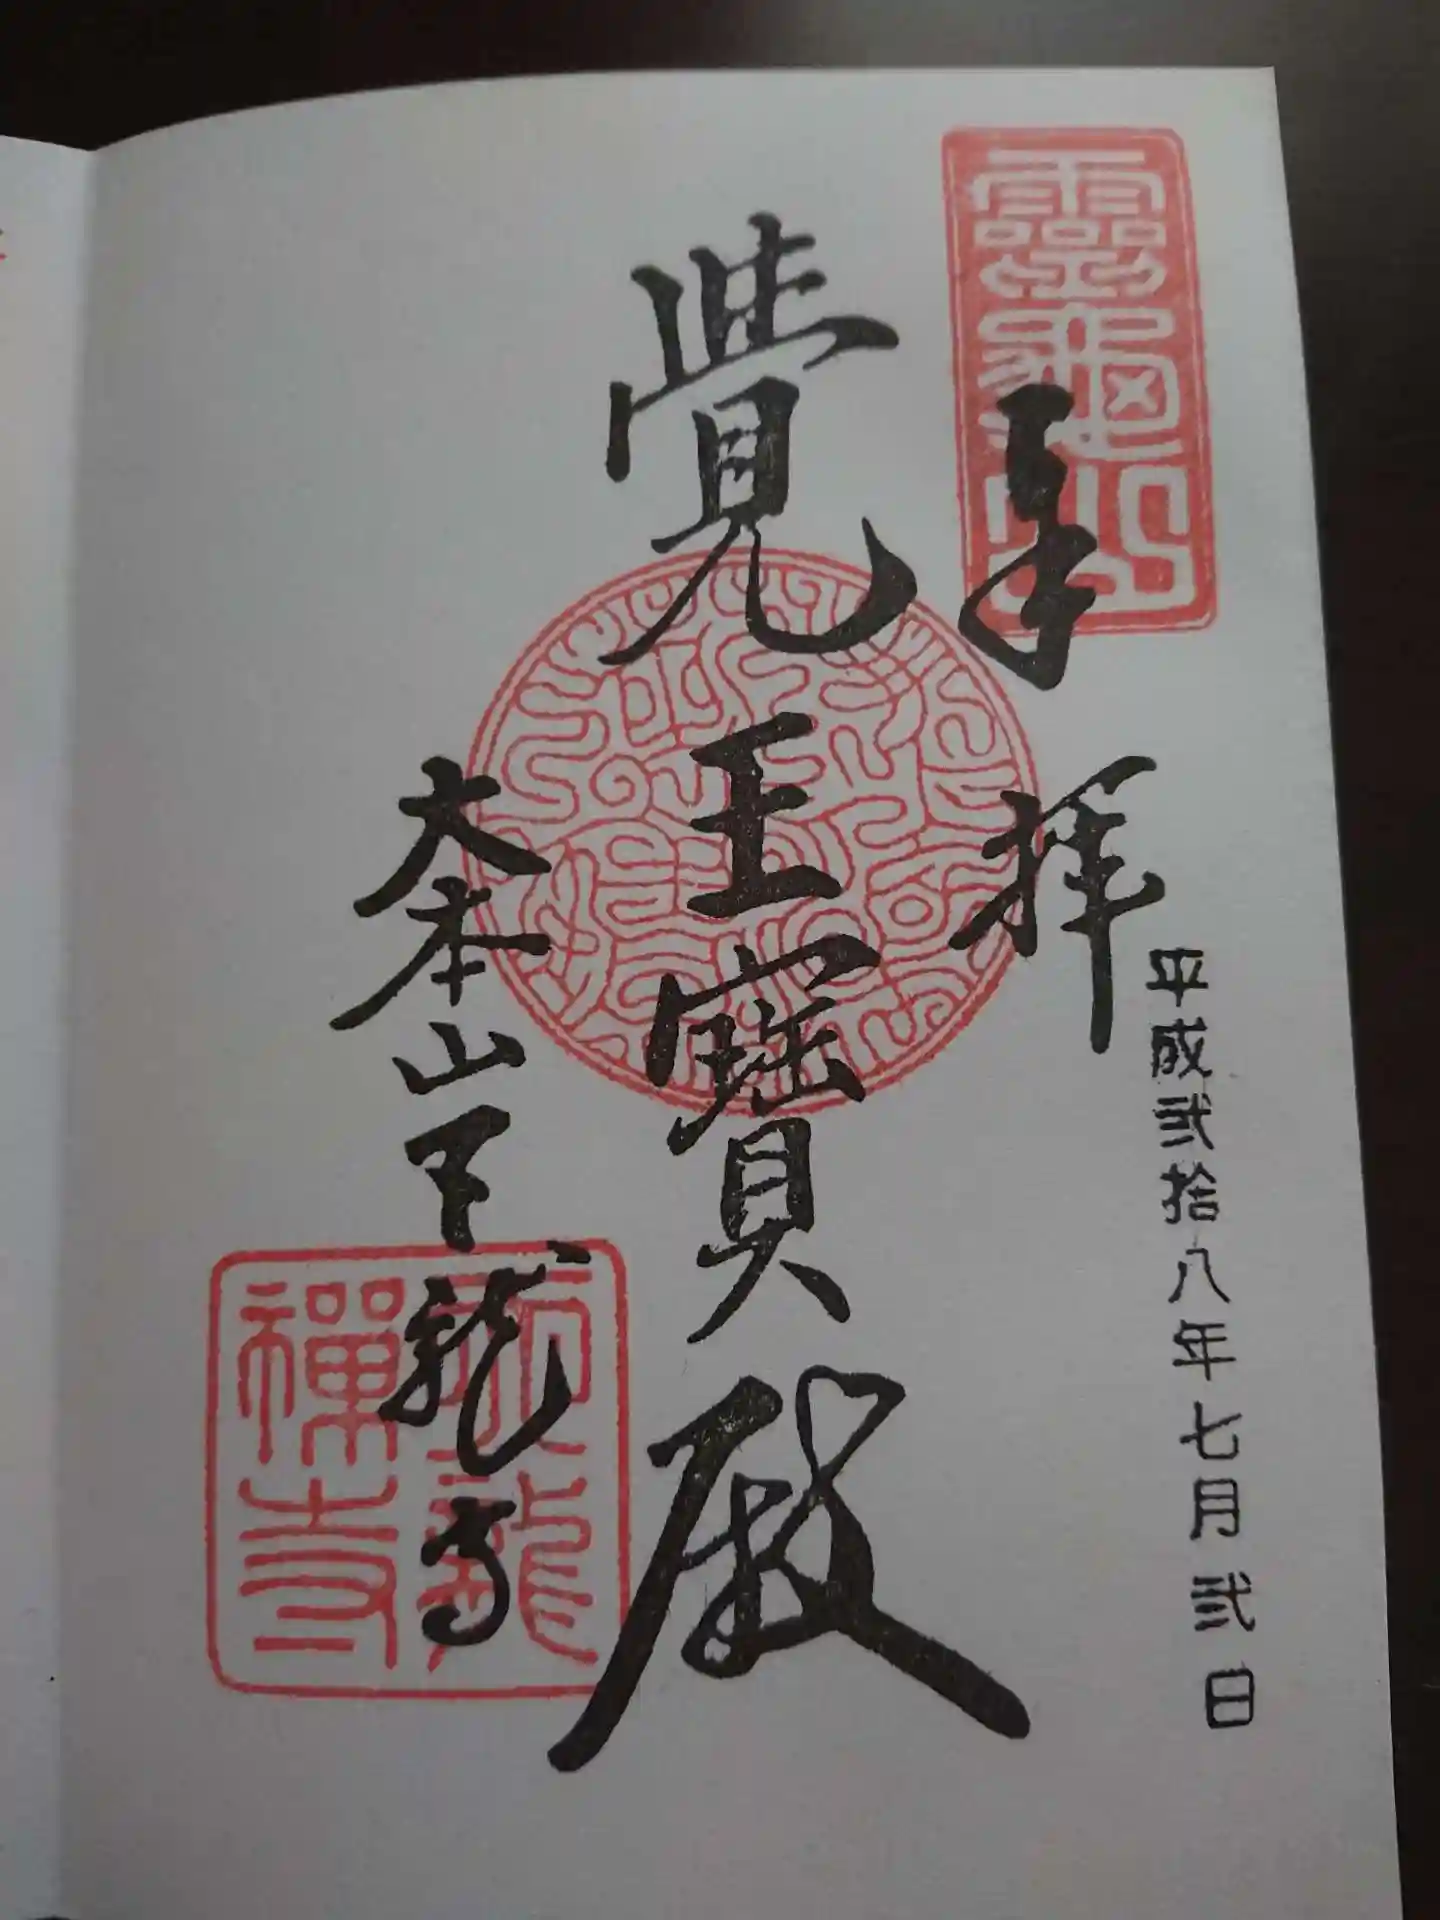 靈龜山
奉拝
平成弐拾八年七月弐日
覺王寶殿
大本山天龍寺
天龍
禅寺